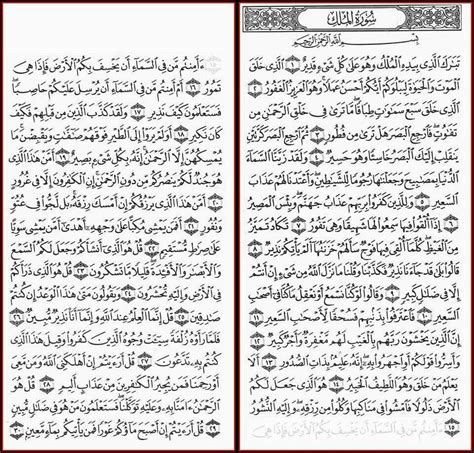 سُورَةُ المُلْكِ
بِسْمِ اللَّهِ الرَّحْمَٰنِ الرَّحِيمِ
تَبَارَكَ الَّذِي بِيَدِهِ الْمُلْكُ وَهُوَ عَلَىٰ كُلِّ شَيْءٍ قَدِيرٌ ١ الَّذِي خَلَقَ
الْمَوْتَ وَالْحَيَاةَ لِيَبْلُوَكُمْ أَيُّكُمْ أَحْسَنُ عَمَلًا وَهُوَ الْعَزِيزُ الْغَفُورُ ٢
الَّذِي خَلَقَ سَبْعَ سَمَاوَاتٍ طِبَاقًا مَا تَرَىٰ فِي خَلْقِ الرَّحْمَٰنِ مِنْ
تَفَاوُتٍ فَارْجِعِ الْبَصَرَ هَلْ تَرَىٰ مِنْ فُطُورٍ ٣ ثُمَّ ارْجِعِ الْبَصَرَ كَرَّتَيْنِ
يَنْقَلِبْ إِلَيْكَ الْبَصَرُ خَاسِئًا وَهُوَ حَسِيرٌ ٤ وَلَقَدْ زَيَّنَّا السَّمَاءَ
الدُّنْيَا بِمَصَابِيحَ وَجَعَلْنَاهَا رُجُومًا لِلشَّيَاطِينِ وَأَعْتَدْنَا لَهُمْ عَذَابَ
السَّعِيرِ ٥ وَلِلَّذِينَ كَفَرُوا بِرَبِّهِمْ عَذَابُ جَهَنَّمَ وَبِئْسَ الْمَصِيرُ
٦ إِذَا أُلْقُوا فِيهَا سَمِعُوا لَهَا شَهِيقًا وَهِيَ تَفُورُ ٧ تَكَادُ تَمَيَّزُ
مِنَ الْغَيْظِ كُلَّمَا أُلْقِيَ فِيهَا فَوْجٌ سَأَلَهُمْ خَزَنَتُهَا أَلَمْ يَأْتِكُمْ نَذِيرٌ ٨
قَالُوا بَلَىٰ قَدْ جَاءَنَا نَذِيرٌ فَكَذَّبْنَا وَقُلْنَا مَا نَزَّلَ اللَّهُ مِنْ شَيْءٍ إِنْ أَنْتُمْ
إِلَّا فِي ضَلَالٍ كَبِيرٍ ٩ وَقَالُوا لَوْ كُنَّا نَسْمَعُ أَوْ نَعْقِلُ مَا كُنَّا فِي أَصْحَابِ
السَّعِيرِ ١٠ فَاعْتَرَفُوا بِذَنْبِهِمْ فَسُحْقًا لِأَصْحَابِ السَّعِيرِ ١١
إِنَّ الَّذِينَ يَخْشَوْنَ رَبَّهُمْ بِالْغَيْبِ لَهُمْ مَغْفِرَةٌ وَأَجْرٌ كَبِيرٌ ١٢
وَأَسِرُّوا قَوْلَكُمْ أَوِ اجْهَرُوا بِهِ إِنَّهُ عَلِيمٌ بِذَاتِ الصُّدُورِ ١٣ أَلَا
يَعْلَمُ مَنْ خَلَقَ وَهُوَ اللَّطِيفُ الْخَبِيرُ ١٤ هُوَ الَّذِي جَعَلَ لَكُمُ
الْأَرْضَ ذَلُولًا فَامْشُوا فِي مَنَاكِبِهَا وَكُلُوا مِنْ رِزْقِهِ وَإِلَيْهِ النُّشُورُ
١٥ ءَأَمِنْتُمْ مَنْ فِي السَّمَاءِ أَنْ يَخْسِفَ بِكُمُ الْأَرْضَ فَإِذَا هِيَ
١٥ ءَأَمِنْتُمْ مَنْ فِي السَّمَاءِ أَنْ يَخْسِفَ بِكُمُ الْأَرْضَ فَإِذَا هِيَ
تَمُورُ ١٦ أَمْ أَمِنْتُمْ مَنْ فِي السَّمَاءِ أَنْ يُرْسِلَ عَلَيْكُمْ حَاصِبًا
فَسَتَعْلَمُونَ كَيْفَ نَذِيرِ ١٧ وَلَقَدْ كَذَّبَ الَّذِينَ مِنْ قَبْلِهِمْ فَكَيْفَ
كَانَ نَكِيرِ ١٨ أَوَلَمْ يَرَوْا إِلَى الطَّيْرِ فَوْقَهُمْ صَافَّاتٍ وَيَقْبِضْنَ مَا
يُمْسِكُهُنَّ إِلَّا الرَّحْمَٰنُ إِنَّهُ بِكُلِّ شَيْءٍ بَصِيرٌ ١٩ أَمَّنْ هَٰذَا الَّذِي
هُوَ جُنْدٌ لَكُمْ يَنْصُرُكُمْ مِنْ دُونِ الرَّحْمَٰنِ إِنِ الْكَافِرُونَ إِلَّا فِي غُرُورٍ
٢٠ أَمَّنْ هَٰذَا الَّذِي يَرْزُقُكُمْ إِنْ أَمْسَكَ رِزْقَهُ بَلْ لَجُّوا فِي عُتُوٍّ
وَنُفُورٍ ٢١ أَفَمَنْ يَمْشِي مُكِبًّا عَلَىٰ وَجْهِهِ أَهْدَىٰ أَمَّنْ يَمْشِي سَوِيًّا
عَلَىٰ صِرَاطٍ مُسْتَقِيمٍ ٢٢ قُلْ هُوَ الَّذِي أَنْشَأَكُمْ وَجَعَلَ لَكُمُ السَّمْعَ
وَالْأَبْصَارَ وَالْأَفْئِدَةَ قَلِيلًا مَا تَشْكُرُونَ ٢٣ قُلْ هُوَ الَّذِي ذَرَأَكُمْ
فِي الْأَرْضِ وَإِلَيْهِ تُحْشَرُونَ ٢٤ وَيَقُولُونَ مَتَىٰ هَٰذَا الْوَعْدُ إِنْ كُنْتُمْ
صَادِقِينَ ٢٥ قُلْ إِنَّمَا الْعِلْمُ عِنْدَ اللَّهِ وَإِنَّمَا أَنَا نَذِيرٌ مُبِينٌ ٢٦
فَلَمَّا رَأَوْهُ زُلْفَةً سِيئَتْ وُجُوهُ الَّذِينَ كَفَرُوا وَقِيلَ هَٰذَا الَّذِي
كُنْتُمْ بِهِ تَدَّعُونَ ٢٧ قُلْ أَرَأَيْتُمْ إِنْ أَهْلَكَنِيَ اللَّهُ وَمَنْ مَعِيَ
أَوْ رَحِمَنَا فَمَنْ يُجِيرُ الْكَافِرِينَ مِنْ عَذَابٍ أَلِيمٍ ٢٨ قُلْ هُوَ
الرَّحْمَٰنُ آمَنَّا بِهِ وَعَلَيْهِ تَوَكَّلْنَا فَسَتَعْلَمُونَ مَنْ هُوَ فِي ضَلَالٍ مُبِينٍ
٢٩ قُلْ أَرَأَيْتُمْ إِنْ أَصْبَحَ مَاؤُكُمْ غَوْرًا فَمَنْ يَأْتِيكُمْ بِمَاءٍ مَعِينٍ ٣٠